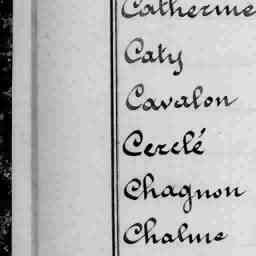 Catherine
Caty
Cavalon
Cerclé
Chagnon
Chalme